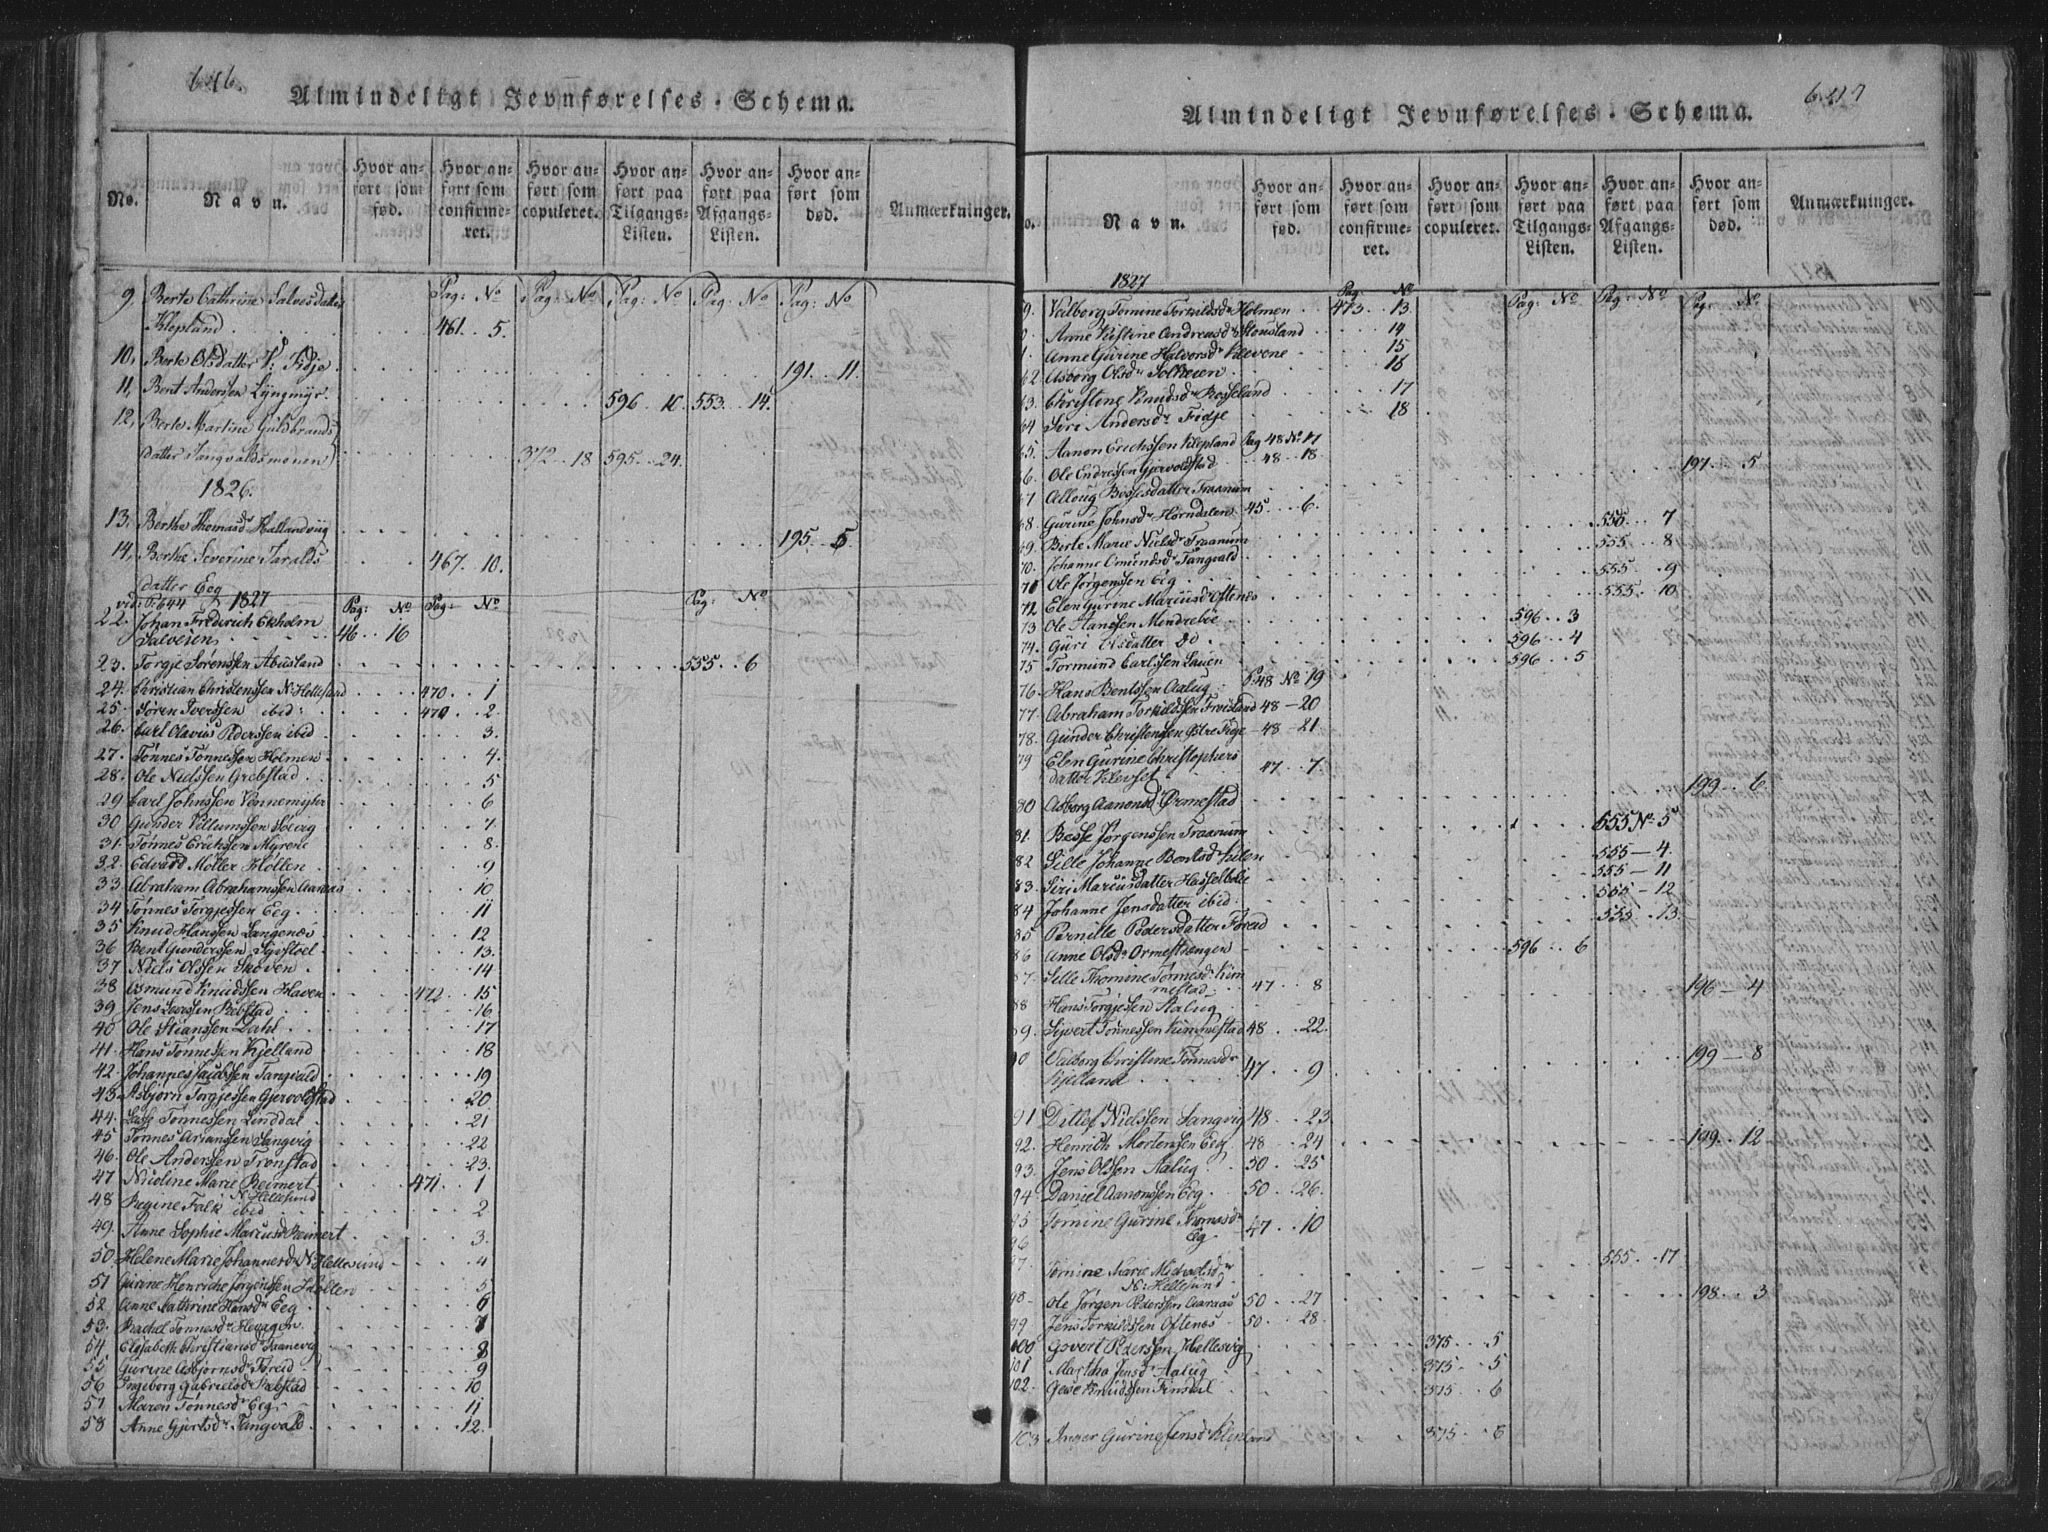 646.
Almindeligt Jevnførelses-Schema.
No.
Navn.
Hvor anført som fød.
Hvor anført som confirmeret.
Hvor anført som copuleret.
Hvor anført paa Tilgangs-Listen.
Hvor anført paa Afgangs-Listen.
Hvor anført som død.
Anmærkninger.
Pag: No Pag: No Pag: No Pag: No Pag: No
9, Berte Cathrine Salvesdatter
Klepland 461 5.
10, Berte Olsdatter V: Fidje 191 11.
11, Bent Anderssen Lyngmyr. 596 10 553 14.
12, Berte Martine Guldbrands
datter Tangvaldsmonen 372 18 595 24.
1826.
13. Berthe Thomasdr Hallandviig 195 5
14, Berthe Severine Taralds 467. 10.
datter Eeg
vid: P: 644 1827 Pag: No Pag: No Pag: No
22. Johan Fredrich Ekholm
Salvesen 46 16
23. Torgje Sørenssen Abusland 555 6
24. Christian Christenssen N: Hellesund 470 1
25. Søren Iverssen ibid: 470 2.
26. Carl Olavus Pederssen ibid 3.
27. Tønnes Tønnessen Holmen 4.
28. Ole Nielssen Grebstad 5
29 Carl Johnssen Vennemyhr 6
30 Gunder Villumssen Søeig 7
31. Tønnes Erichssen Myrene 8.
32. Edvard Møller Høllen 9
33. Abraham Abrahamssen Aaraas 10
34 Tønnes Torgjessen Eeg 11
35 Knud Hanssen Langenes 12
36 Bent Gunderssen Sigstoel 13.
37 Niels Olssen Skoven 14
38 Asmund Knudssen Haven 472 15
39 Jens Larssen Rebstad 16
40 Ole Stianssen Dahl 17
41. Hans Tønnessen Kjelland 18
42. Johannes Jacobssen Tangvald 19
43. Asbjørn Torgjessen Gjervoldstad 20
44. Lars Tønnessen Linddal 21
45 Tønnes Arianssen Langvig 22
46. Ole Anderssen Tronstad 23.
47 Nicoline Marie Reimert 471 1
N: Hellesund
48 Regine Falk ibid 2
49. Anne Sophie Marcusdr Reimert 3.
50. Helene Marie Johannesdr N: Hellesund 4
51 Gurine Henriche Jørgenssen Høllen 5
52 Anne Cathrine Hansdr Eeg 6
53. Rachel Tønnesdr Heaagen 7
54 Elisabeth Christiansdr Taanevig 8
55 Gurine Asbjørnsdr Føreid 9
56 Ingeborg Gabrielsdr Rebstad 10
57 Maren Tønnesdr Eeg 11
58 Anne Gjertsdr Tangvald 12.
647
Almindeligt Jevnførelses-Schema.
o.
Navn.
Hvor anført som fød.
Hvor anført som confirmeret.
Hvor anført som copuleret.
Hvor anført paa Tilgangs-Listen.
Hvor anført paa Afgangs-Listen.
Hvor anført som død.
Anmærkninger.
1827 Pag: No Pag: No Pag: No Pag: No
9. Valborg Tomine Torkildsdr Holmen 473 13.
Anne Kistine Andreasdr Stousland 14
1. Anne Gurine Halvorsdr Klevene 15
62 Asborg Olsdr Solheien 16
63. Christine Knudsdr Rosseland 17
64 Siri Andersdr Fidje 18
65. Aanon Erichssen Klepland Pag 48 No 17
66. Ole Endressen Gjervoldstad 48 18.
67 Alloug Bossesdatter Traanum 197 5
68. Gurine Johnsdr Horndalen 45 6.
69. Berte Marie Nielsdr Traanum 555 7
70. Johanne Omundsdr Tangvald 555 8
71 Ole Jørgenssen Eeg 555 9
72 Elen Gurine Marcusdr Oftenes 555 10
73 Ole Hanssen Mindrebøe 596 3
74. Guri Olsdatter do 596 4
75 Tormund Carlssen Lauen 596 5
76. Hans Bentssen Aalug P: 48 No 19
77. Abraham Torkildssen Frøisland 48 — 20
78. Gunder Christenssen Østre Fige 48 — 21
79 Elen Gurine Christophers
datter Klevset 47 7.
80 Asborg Aanonsd Ørmestad 199 6
81. Besse Jørgenssen Traanum 555 No 5
82 Sille Johanne Bentsdr Heien 555 — 4.
83. Siri Marcusdatter Hasselbøle 555 — 11
84 Johanne Jensdatter ibid 555 — 12
85 Pernille Pedersdatter Føreid 555 13.
86 Anne Olsdr Ormestangen 596 6
87. Sille Thomine Tønnesdr Kim
mestad 47 8
88 Hans Torgjessen Aalug 196 — 4
89. Sivert Tønnessen Kimmestad 48 22.
90 Valborg Christine Tønnesdr 199 — 8
Kjelland 47 9
91 Ditlef Nielssen Langvig 48 23.
92. Henrich Mortenssen Eeg 48 24 199 12
93. Jens Olssen Aalug 50 25
94. Daniel Aanonssen Eeg 50 26.
95 Tomine Gurine Thomasdr
Eeg 47 10
96
97. Tomine Marie Michelsdr 555 17
N: Hellesund
98 Ole Jørgen Pederssen Aaraas 50 27 198 3
99 Jens Torkildssen Oftenes 50 28.
100 Govert Pederssen Hellesvig 375 5
101 Martha Jensdr Aalug 375 5
102. Giese Knudssen Finsdal 375 6
103 Inger Gurine Jensdr Klepland 375 6